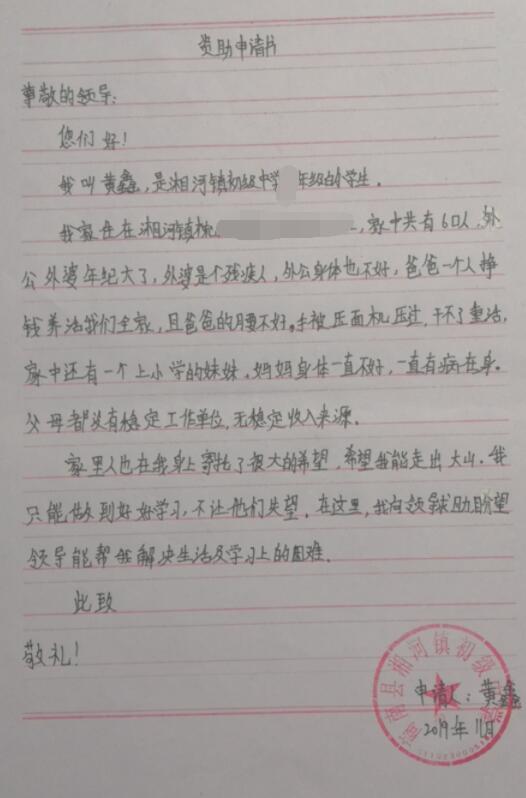 资助申请书
尊敬的领导:
您们好!
我叫黄鑫,是湘河镇初级中学 年级的学生.
我家住在湘河镇 ,家中共有6口人,外
公外婆年纪大了,外婆是个残疾人,外公身体也不好,爸爸一个人挣
钱养活我们全家,且爸爸的腰不好.手被压面机压过,干不了重活,
家中还有一个上小学的妹妹.妈妈身体一直不好,一直有病在身.
父母都没有稳定工作单位,无稳定收入来源.
家里人也在我身上寄托了很大的希望,希望我能走出大山.我
只能做到好好学习,不让他们失望.在这里,我向领导求助盼望
领导能帮我解决生活及学习上的困难.
此致
敬礼!
商南县湘河镇初级中学
申请人:黄鑫
2019年11月